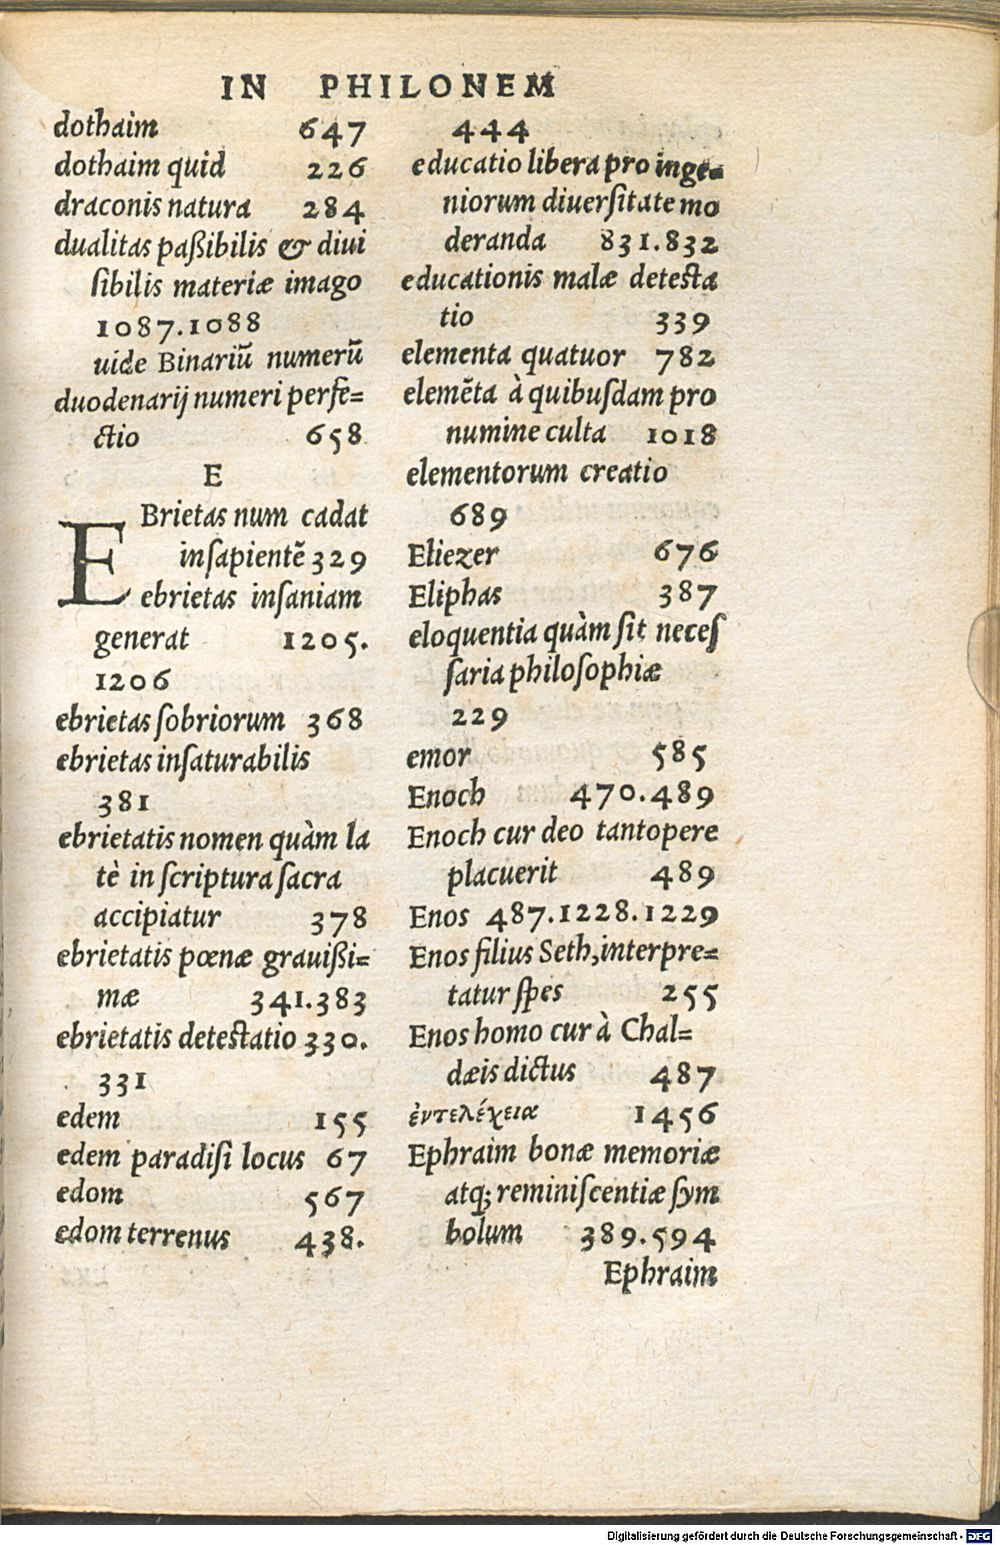 IN PHILONEM
dothaim 647
dothaim quid 226
draconis natura 284
dualitas paßibilis & diui
ſibilis materiæ imago
1087.1088
uide Binariū numerū
duodenarij numeri perfe=
ctio 658
E
EBrietas num cadat
in ſapientē 329
ebrietas inſaniam
generat 1205.
1206
ebrietas ſobriorum 368
ebrietas inſaturabilis
381
ebrietatis nomen quàm la
tè in ſcriptura ſacra
accipiatur 378
ebrietatis pœnæ grauißi=
mæ 341.383
ebrietatis deteſtatio 330.
331
edem 155
edem paradiſi locus 67
edom 567
edom terrenus 438.
444
educatio libera pro inge=
niorum diuerſitate mo
deranda 831.832
educationis malæ deteſta
tio 339
elementa quatuor 782
elemēta à quibuſdam pro
numine culta 1018
elementorum creatio
689
Eliezer 676
Eliphas 387
eloquentia quàm ſit neceſ
ſaria philoſophiæ
229
emor 585
Enoch 470.489
Enoch cur deo tantopere
placuerit 489
Enos 487.1228.1229
Enos filius Seth, interpre=
tatur ſpes 255
Enos homo cur à Chal=
dæis dictus 487
ἐντελέχεια 1456
Ephraim bonæ memoriæ
atq; reminiſcentiæ ſym
bolum 389.594
Ephraim
Digitalisierung gefördert durch die Deutsche Forschungsgemeinschaft - DFG